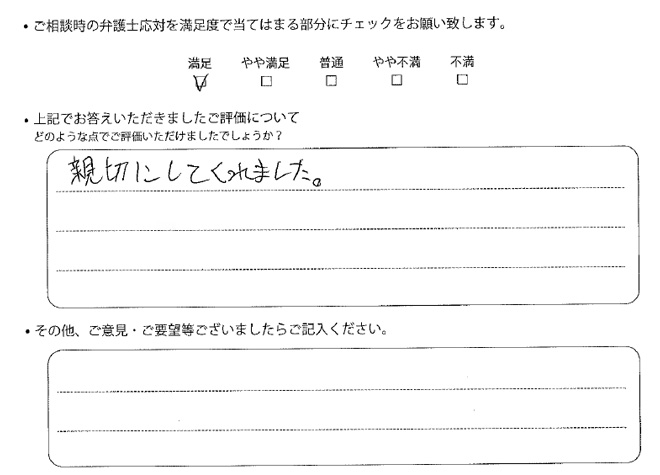 ・ご相談時の弁護士応対を満足度で当てはまる部分にチェックをお願い致します。
満足 やや満足 普通 やや不満 不満
・上記でお答えいただきましたご評価について
どのような点でご評価いただけましたでしょうか？
親切にしてくれました。
・その他、ご意見・ご要望等ございましたらご記入ください。